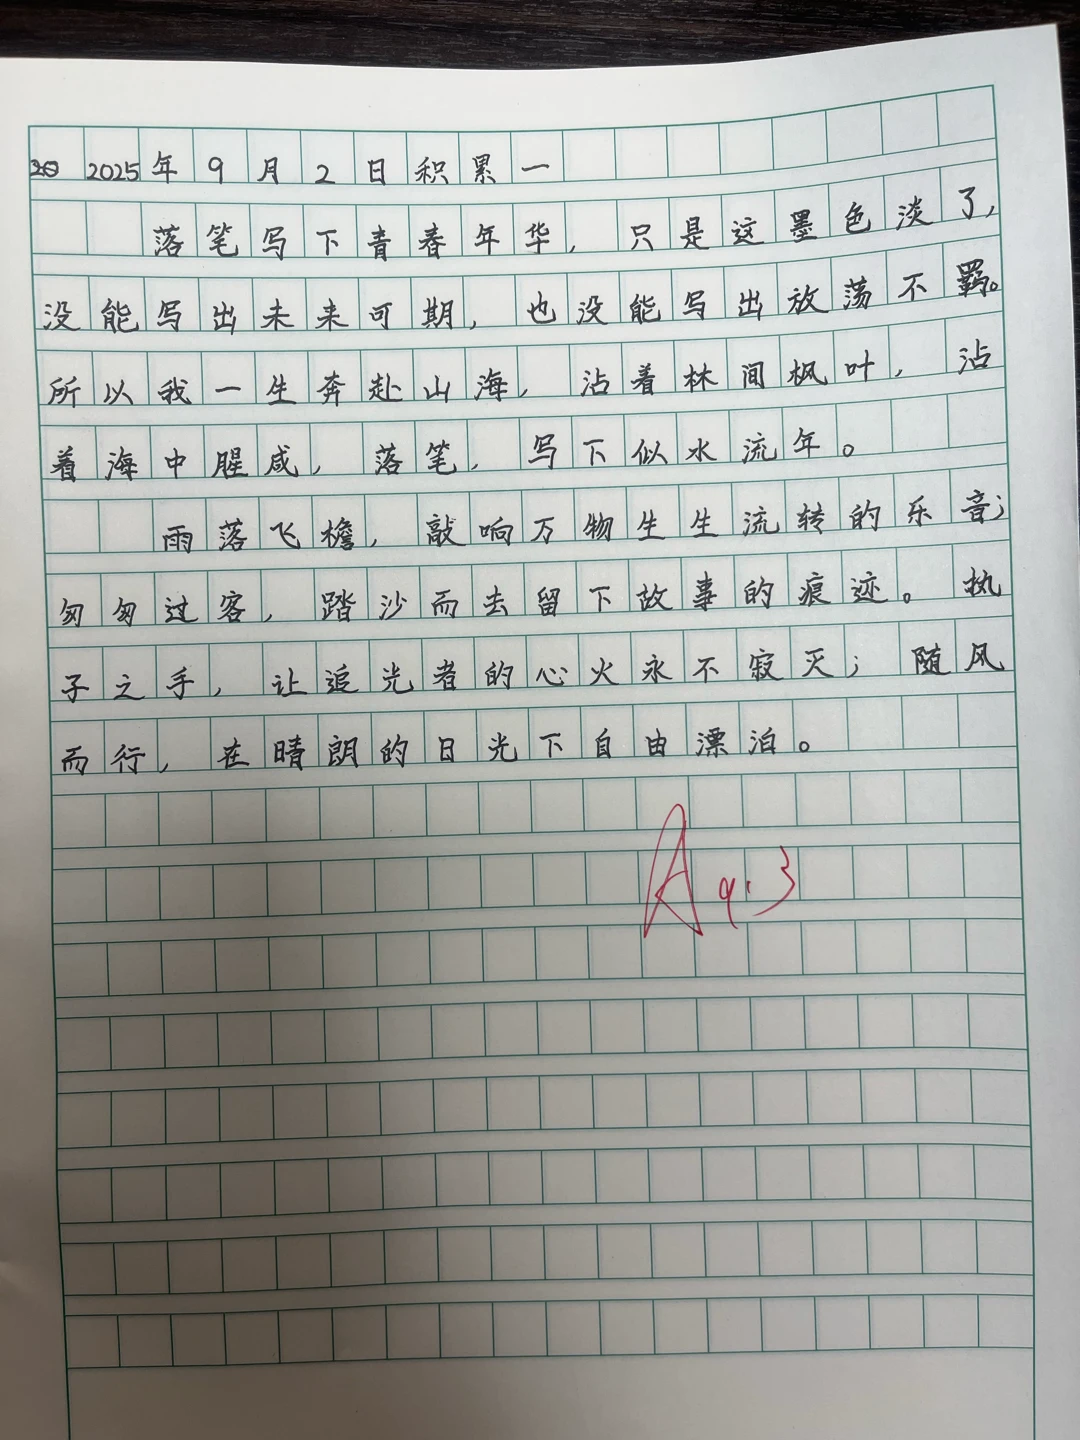 2025年9月2日积累一
落笔写下青春年华，只是这墨色淡了，
没能写出未来可期，也没能写出放荡不羁。
所以我一生奔赴山海，沾着林间枫叶，沾
着海中腥咸，落笔，写下似水流年。
雨落飞檐，敲响万物生生流转的乐音；
匆匆过客，踏沙而去留下故事的痕迹。执
子之手，让追光者的心火永不寂灭；随风
而行，在晴朗的日光下自由漂泊。
A 9.3